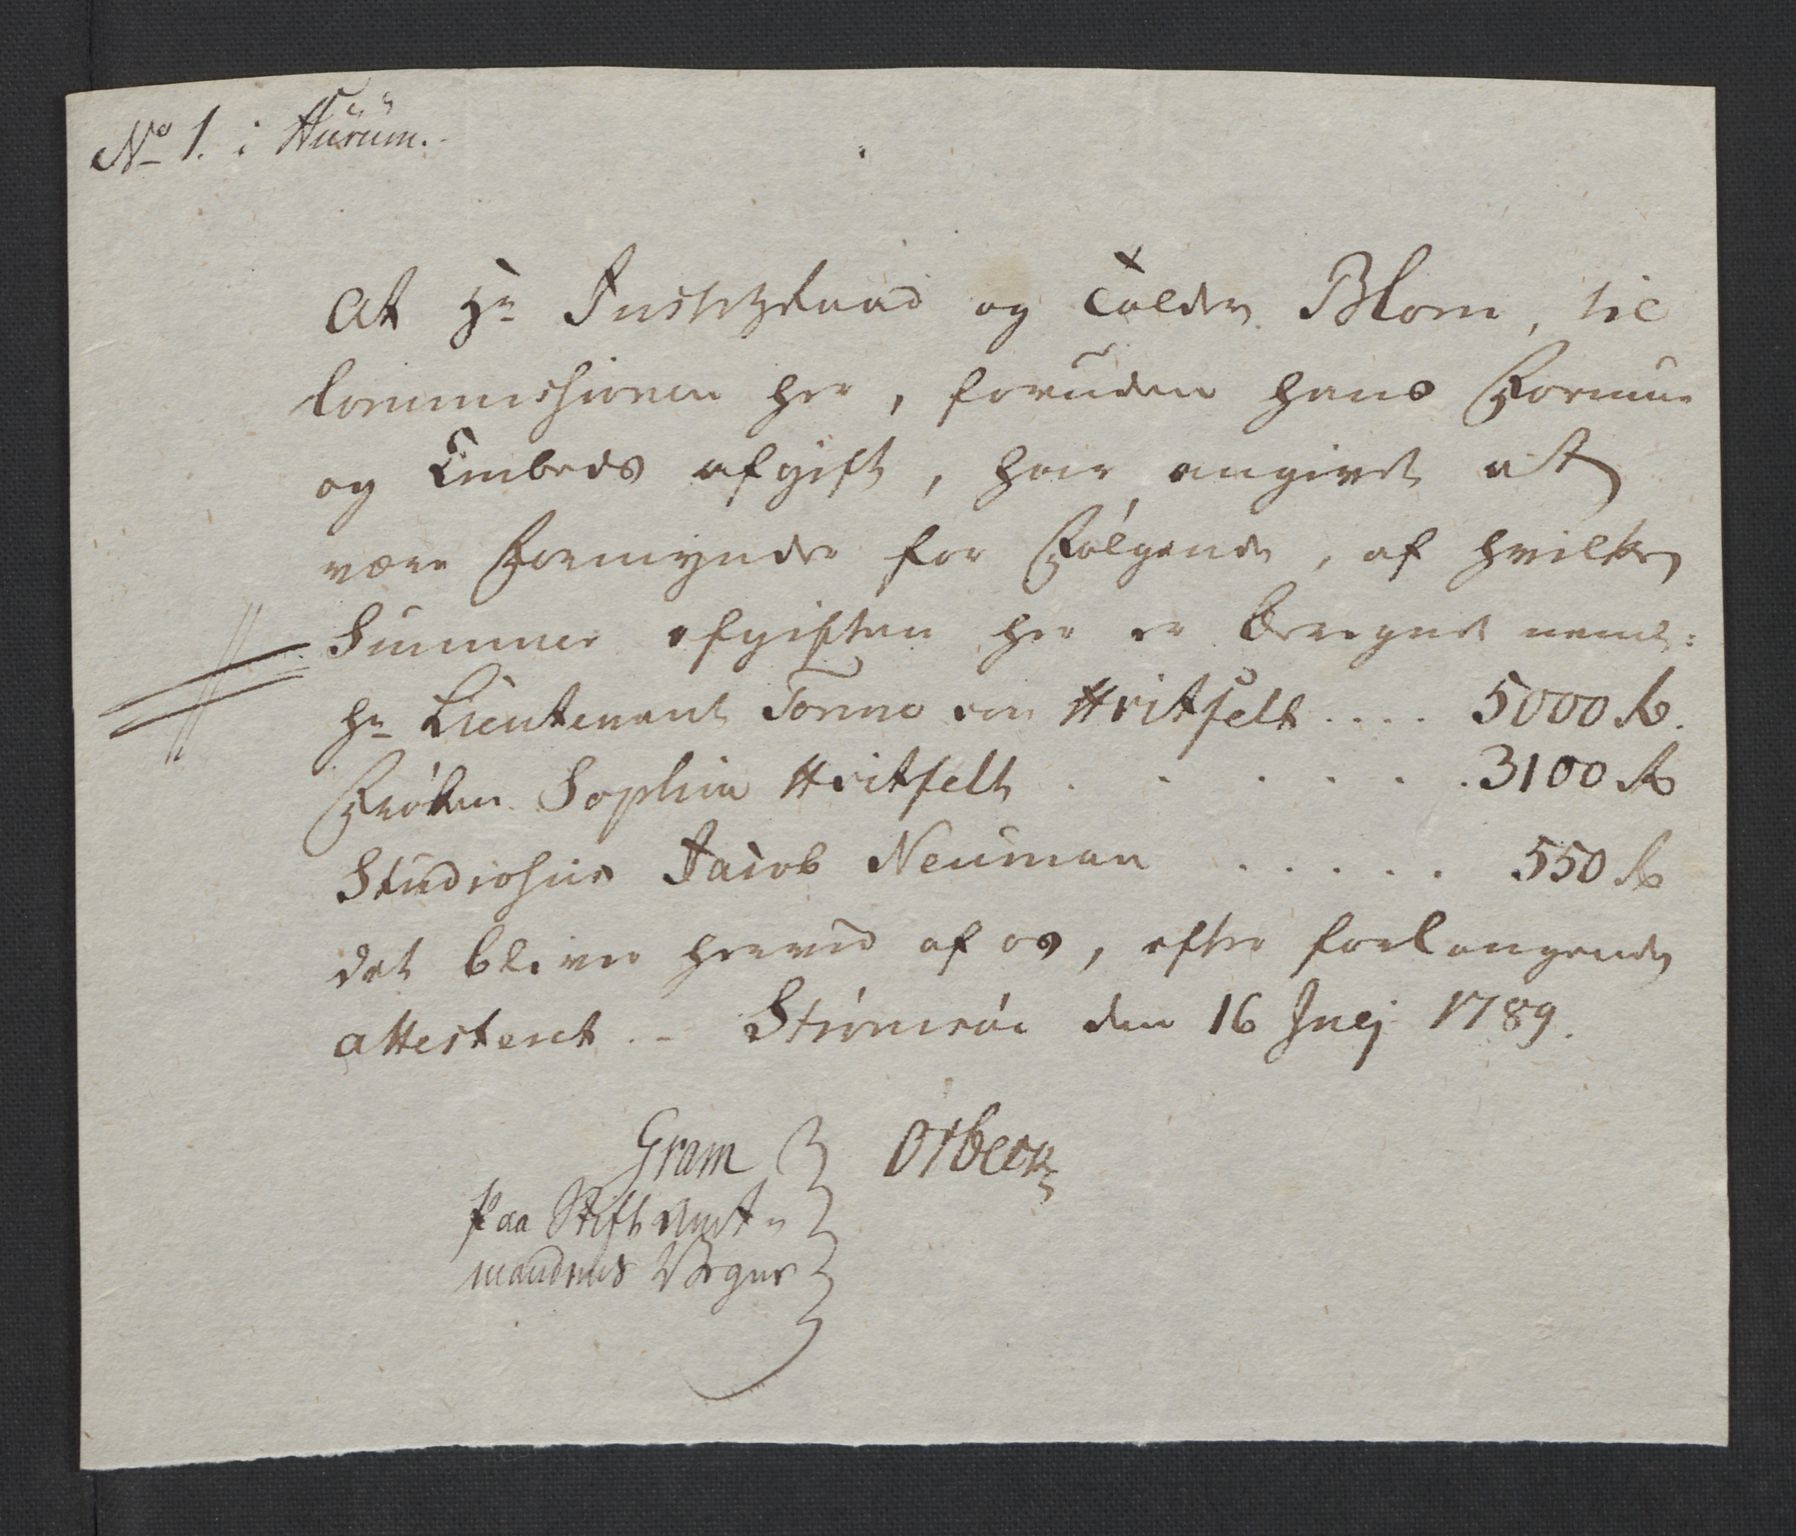 No 1. i Hürüm.
At Hr Justizraad og Tolder Blom, til
Commissionen her, foruden hans Formue
og Embeds afgift, har angivet at
være Formynder for Følgende, af hvilke
Summer afgiften her er beregnet neml:
hr Lieutenant Tonne von Hvitfelt .... 5000 rd.
Frøken Sophia Hvitfelt ...... 3100 rd
Studiosus Jacob Neuman ..... 550 rd
det bliver herved af os, efter forlangende
attesteret. - Strömsöe den 16 Juej 1789.
Gram
Paa Stiftamt-
mandens Vegne